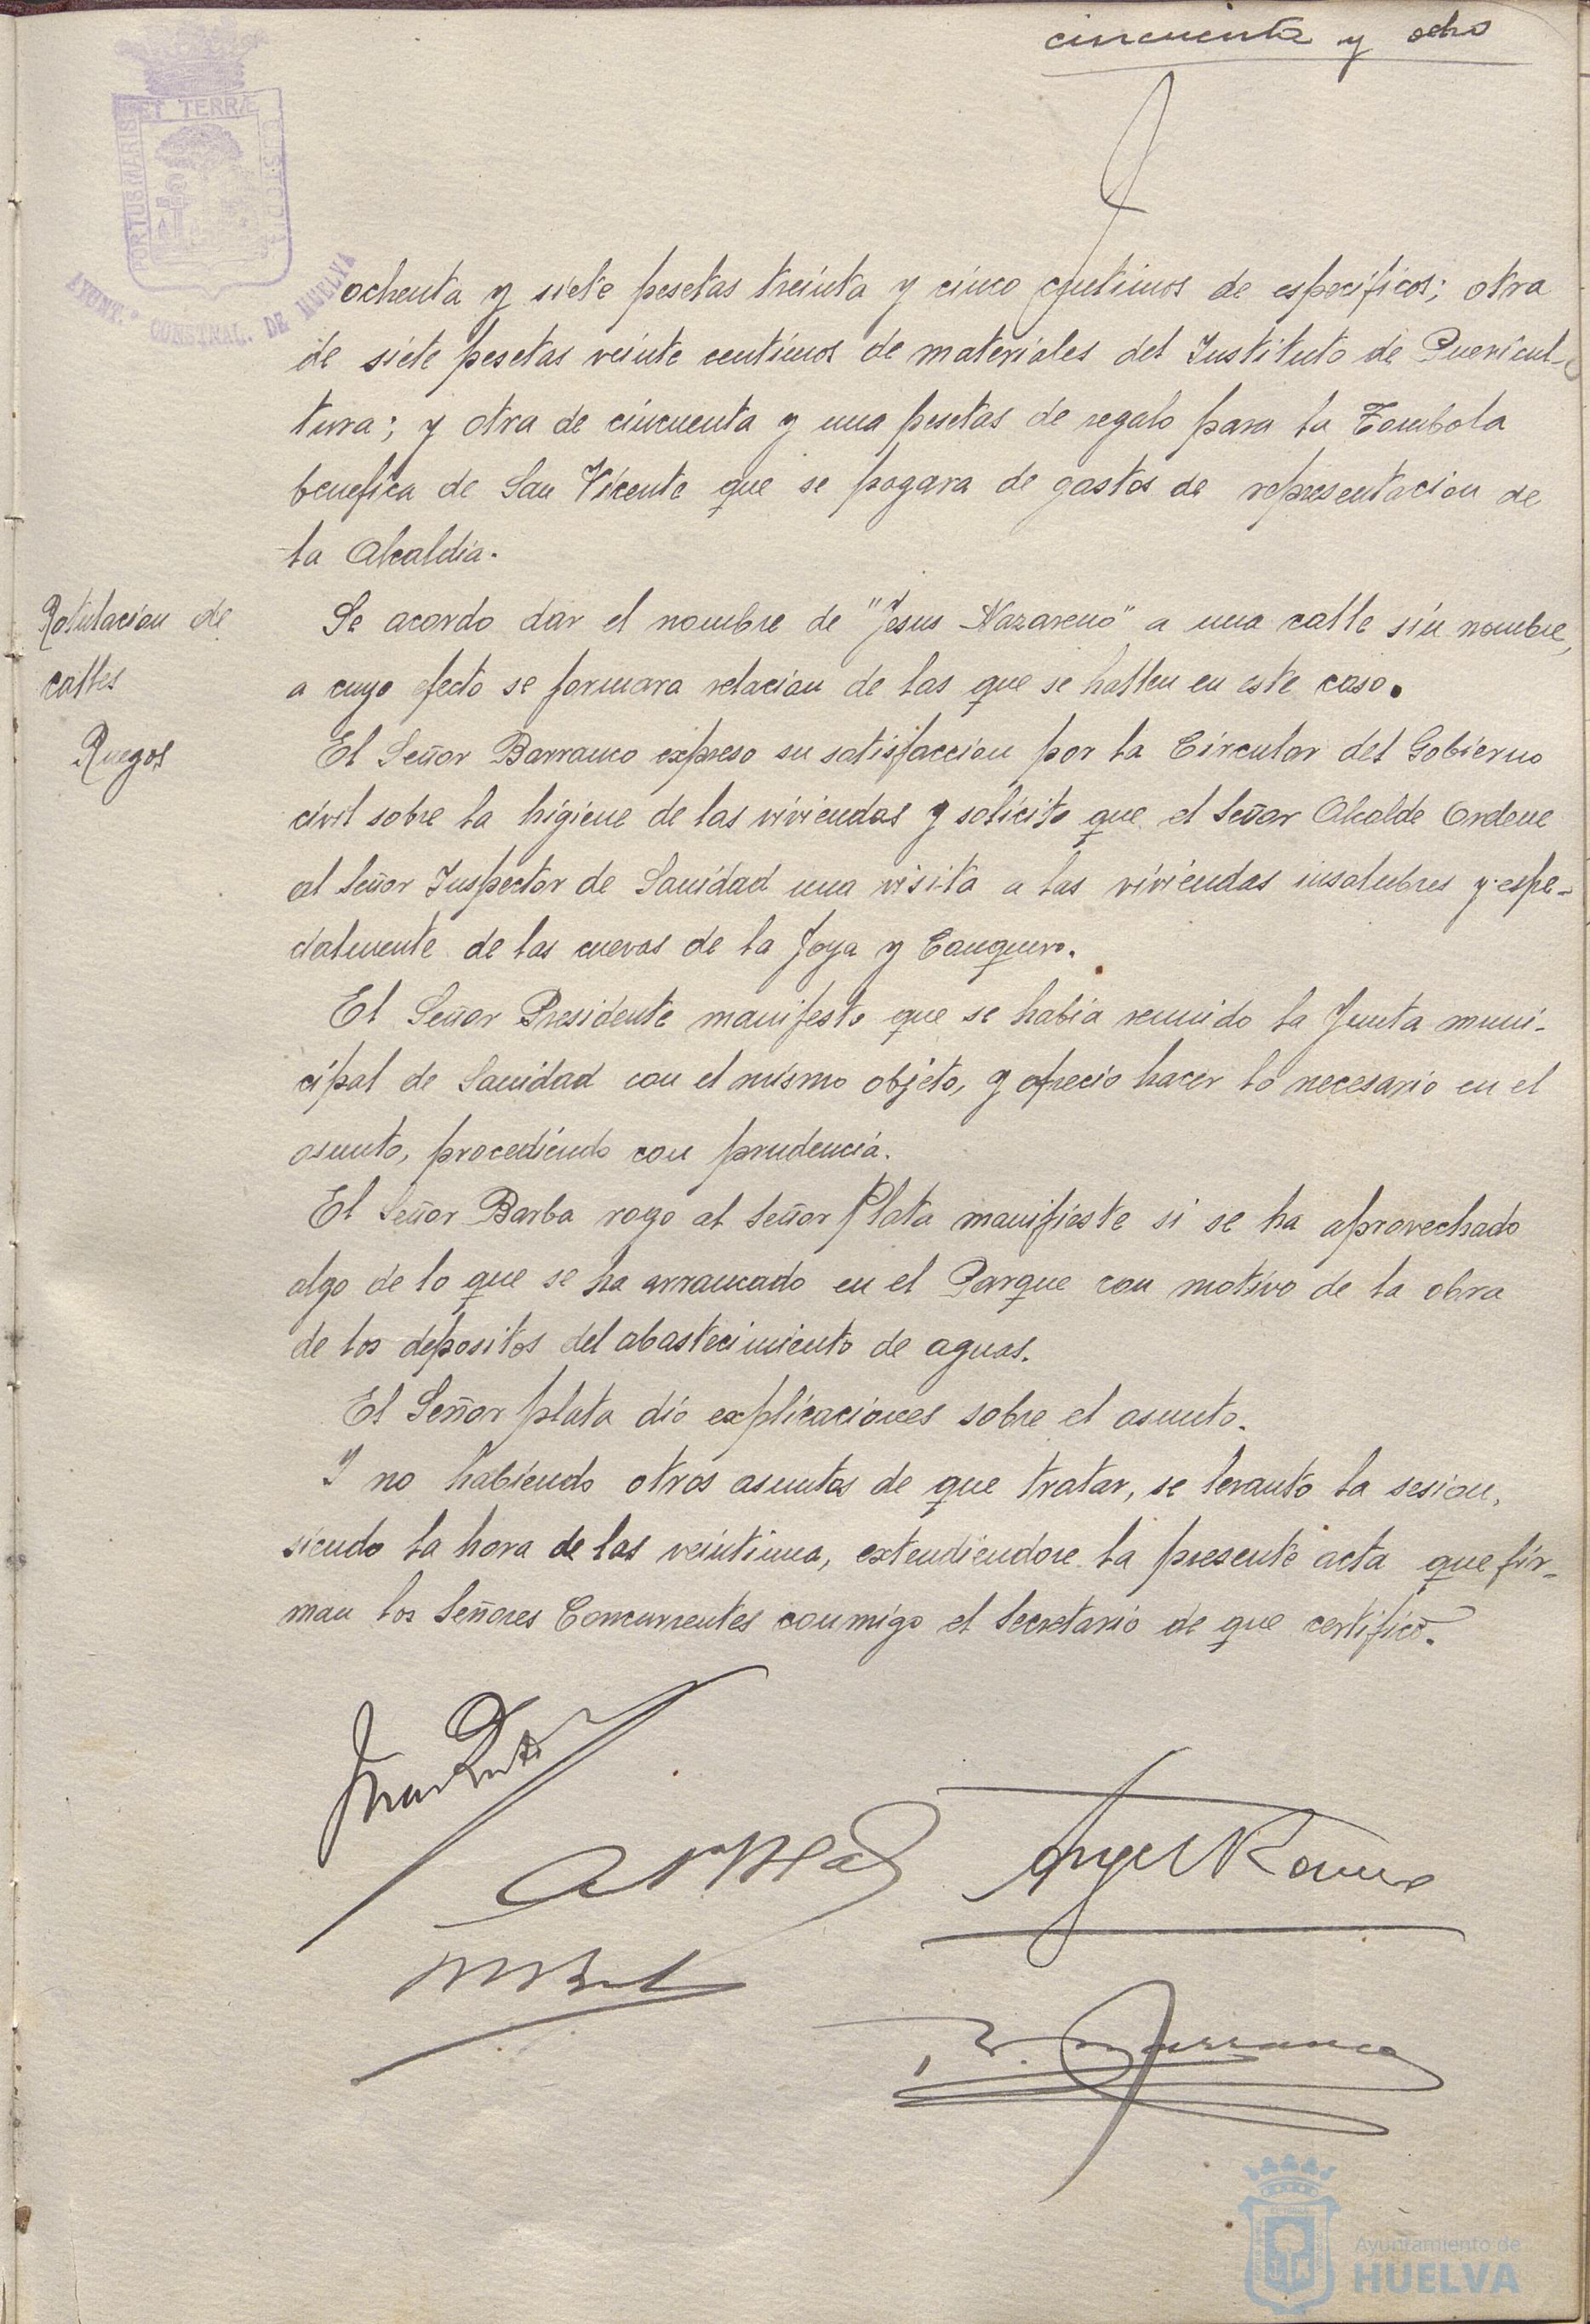 cincuenta y ocho
PORTUS MARIS ET TERRÆ CUSTODIA
AYUNT.º CONSTNAL. DE HUELVA
ochenta y siete pesetas treinta y cinco centimos de especificos; otra
de siete pesetas veinte centimos de materiales del Instituto de Puericul-
tura; y otra de cincuenta y una pesetas de regalo para la Tombola
benefica de San Vicente que se pagara de gastos de representacion de
la Alcaldia.
Rotulacion de
calles
Se acordo dar el nombre de "Jesus Nazareno" a una calle sin nombre,
a cuyo efecto se formara relacion de las que se hallen en este caso.
Ruegos
El Señor Barranco expreso su satisfaccion por la Circular del Gobierno
civil sobre la higiene de las viviendas y solicito que el Señor Alcalde Ordene
al Señor Inspector de Sanidad una visita a las viviendas insalubres y espe-
cialmente de las cuevas de la Joya y Conquero.
El Señor Presidente manifesto que se habia reunido la Junta muni-
cipal de Sanidad con el mismo objeto, y ofrecio hacer lo necesario en el
asunto, procediendo con prudencia.
El Señor Barba rogo al Señor Plata manifieste si se ha aprovechado
algo de lo que se ha arrancado en el Parque con motivo de la obra
de los depositos del abastecimiento de aguas.
El Señor plata dio explicaciones sobre el asunto.
Y no habiendo otros asuntos de que tratar, se levanto la sesion,
siendo la hora de las veintiuna, extendiendose la presente acta que fir-
man los Señores Concurrentes conmigo el Secretario de que certifico.
Barranco
Ayuntamiento de
HUELVA